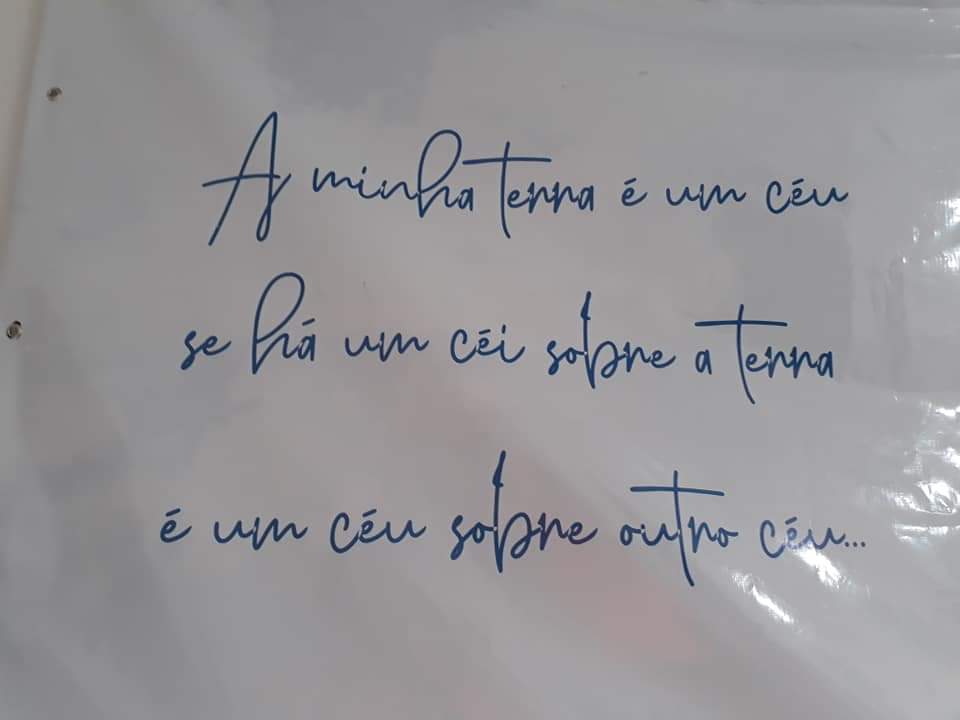 A minha terra é um céu
se há um céi sobre a terra
é um céu sobre outro céu...